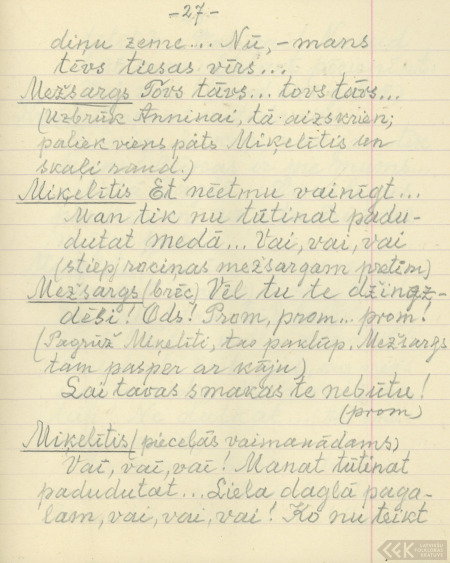 -27-
diņu zeme... Nū, - mans
tēvs tiesas vīrs...
Mežsargs Tovs tāvs... tovs tāvs...
(Uzbrūk Anninai, tā aizskrien;
paliek viens pats Miķelītis un
skaļi raud.)
Miķelītis Et nēetmu vainīgt...
Man tik nu tūtinat padu-
dutat medā... Vai, vai, vai
(stiepj rociņas mežsargam pretim)
Mežsargs (brēc) Vēl tu te
dēsi! Ods! Prom, prom... prom!
(Pagrūž Miķelīti, tas paklūp. Mežsargs
tam pasper ar kāju)
Lai tavas smakas te nebūtu!
(prom)
Miķelītis (pieceļās vaimanādams)
Vaī, vaī, vaī! Manat tūtinat
padudutat... Liela daglā paga-
lam, vai, vai, vai! Ko nu teikt
LATVIEŠU FOLKLORAS KRĀTUVE